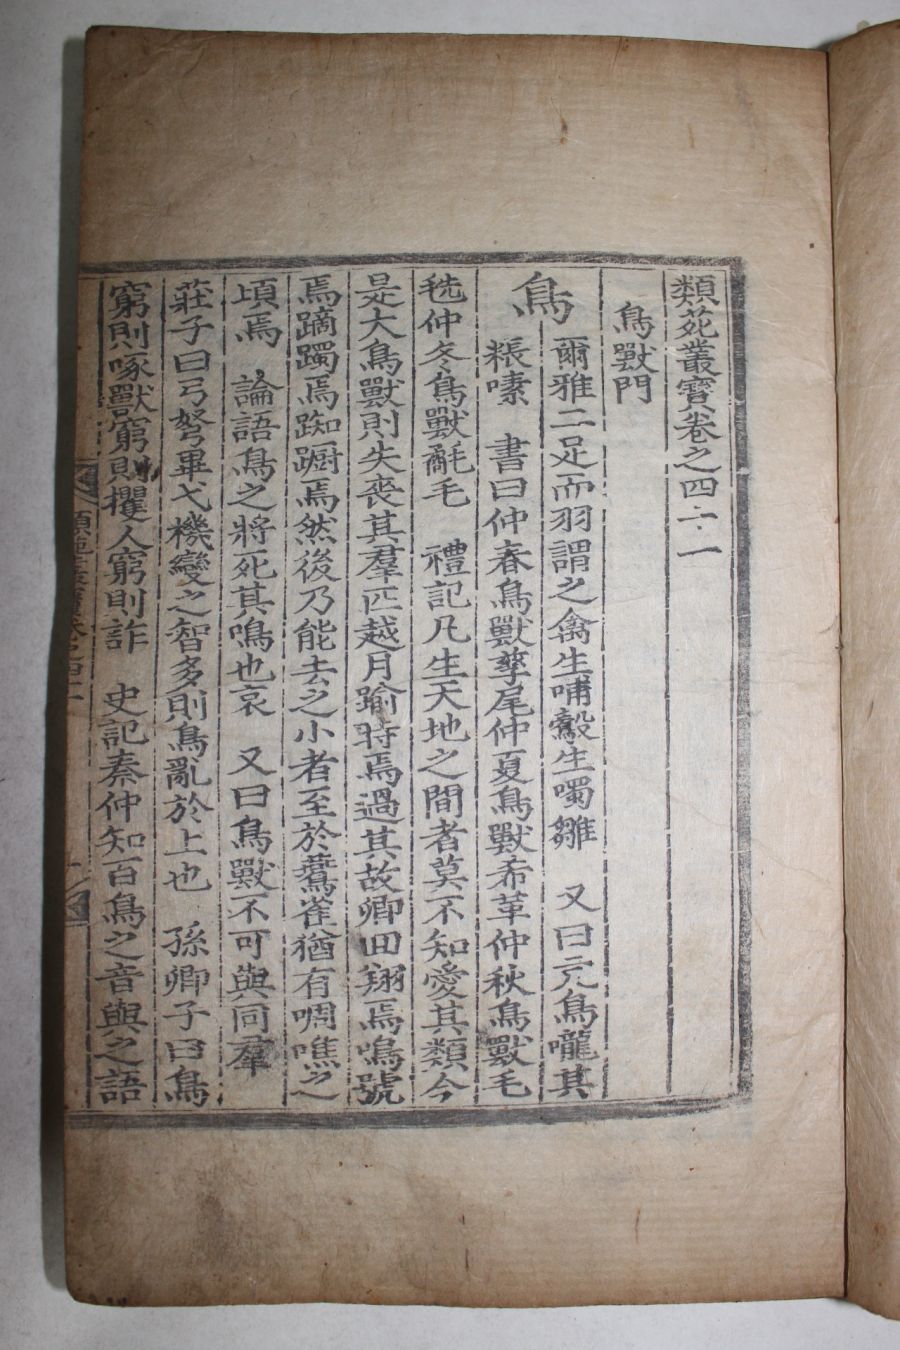 類苑叢寶卷之四十一
鳥獸門
鳥 爾雅二足而羽謂之禽生哺鷇生噣雛 又曰亢鳥嚨其
粻嗉 書曰仲春鳥獸孳尾仲夏鳥獸希革仲秋鳥獸毛
毨仲冬鳥獸氄毛 禮記凡生天地之間者莫不知愛其類今
是大鳥獸則失喪其羣匹越月踰時焉過其故鄉回翔焉鳴號
焉蹢躅焉踟躕焉然後乃能去之小者至於鷰雀猶有啁噍之
頃焉 論語鳥之將死其鳴也哀 又曰鳥獸不可與同羣
莊子曰弓弩畢弋機變之智多則鳥亂於上也 孫卿子曰鳥
窮則啄獸窮則攫人窮則詐 史記秦仲知百鳥之音與之語
類苑叢寶卷之四十